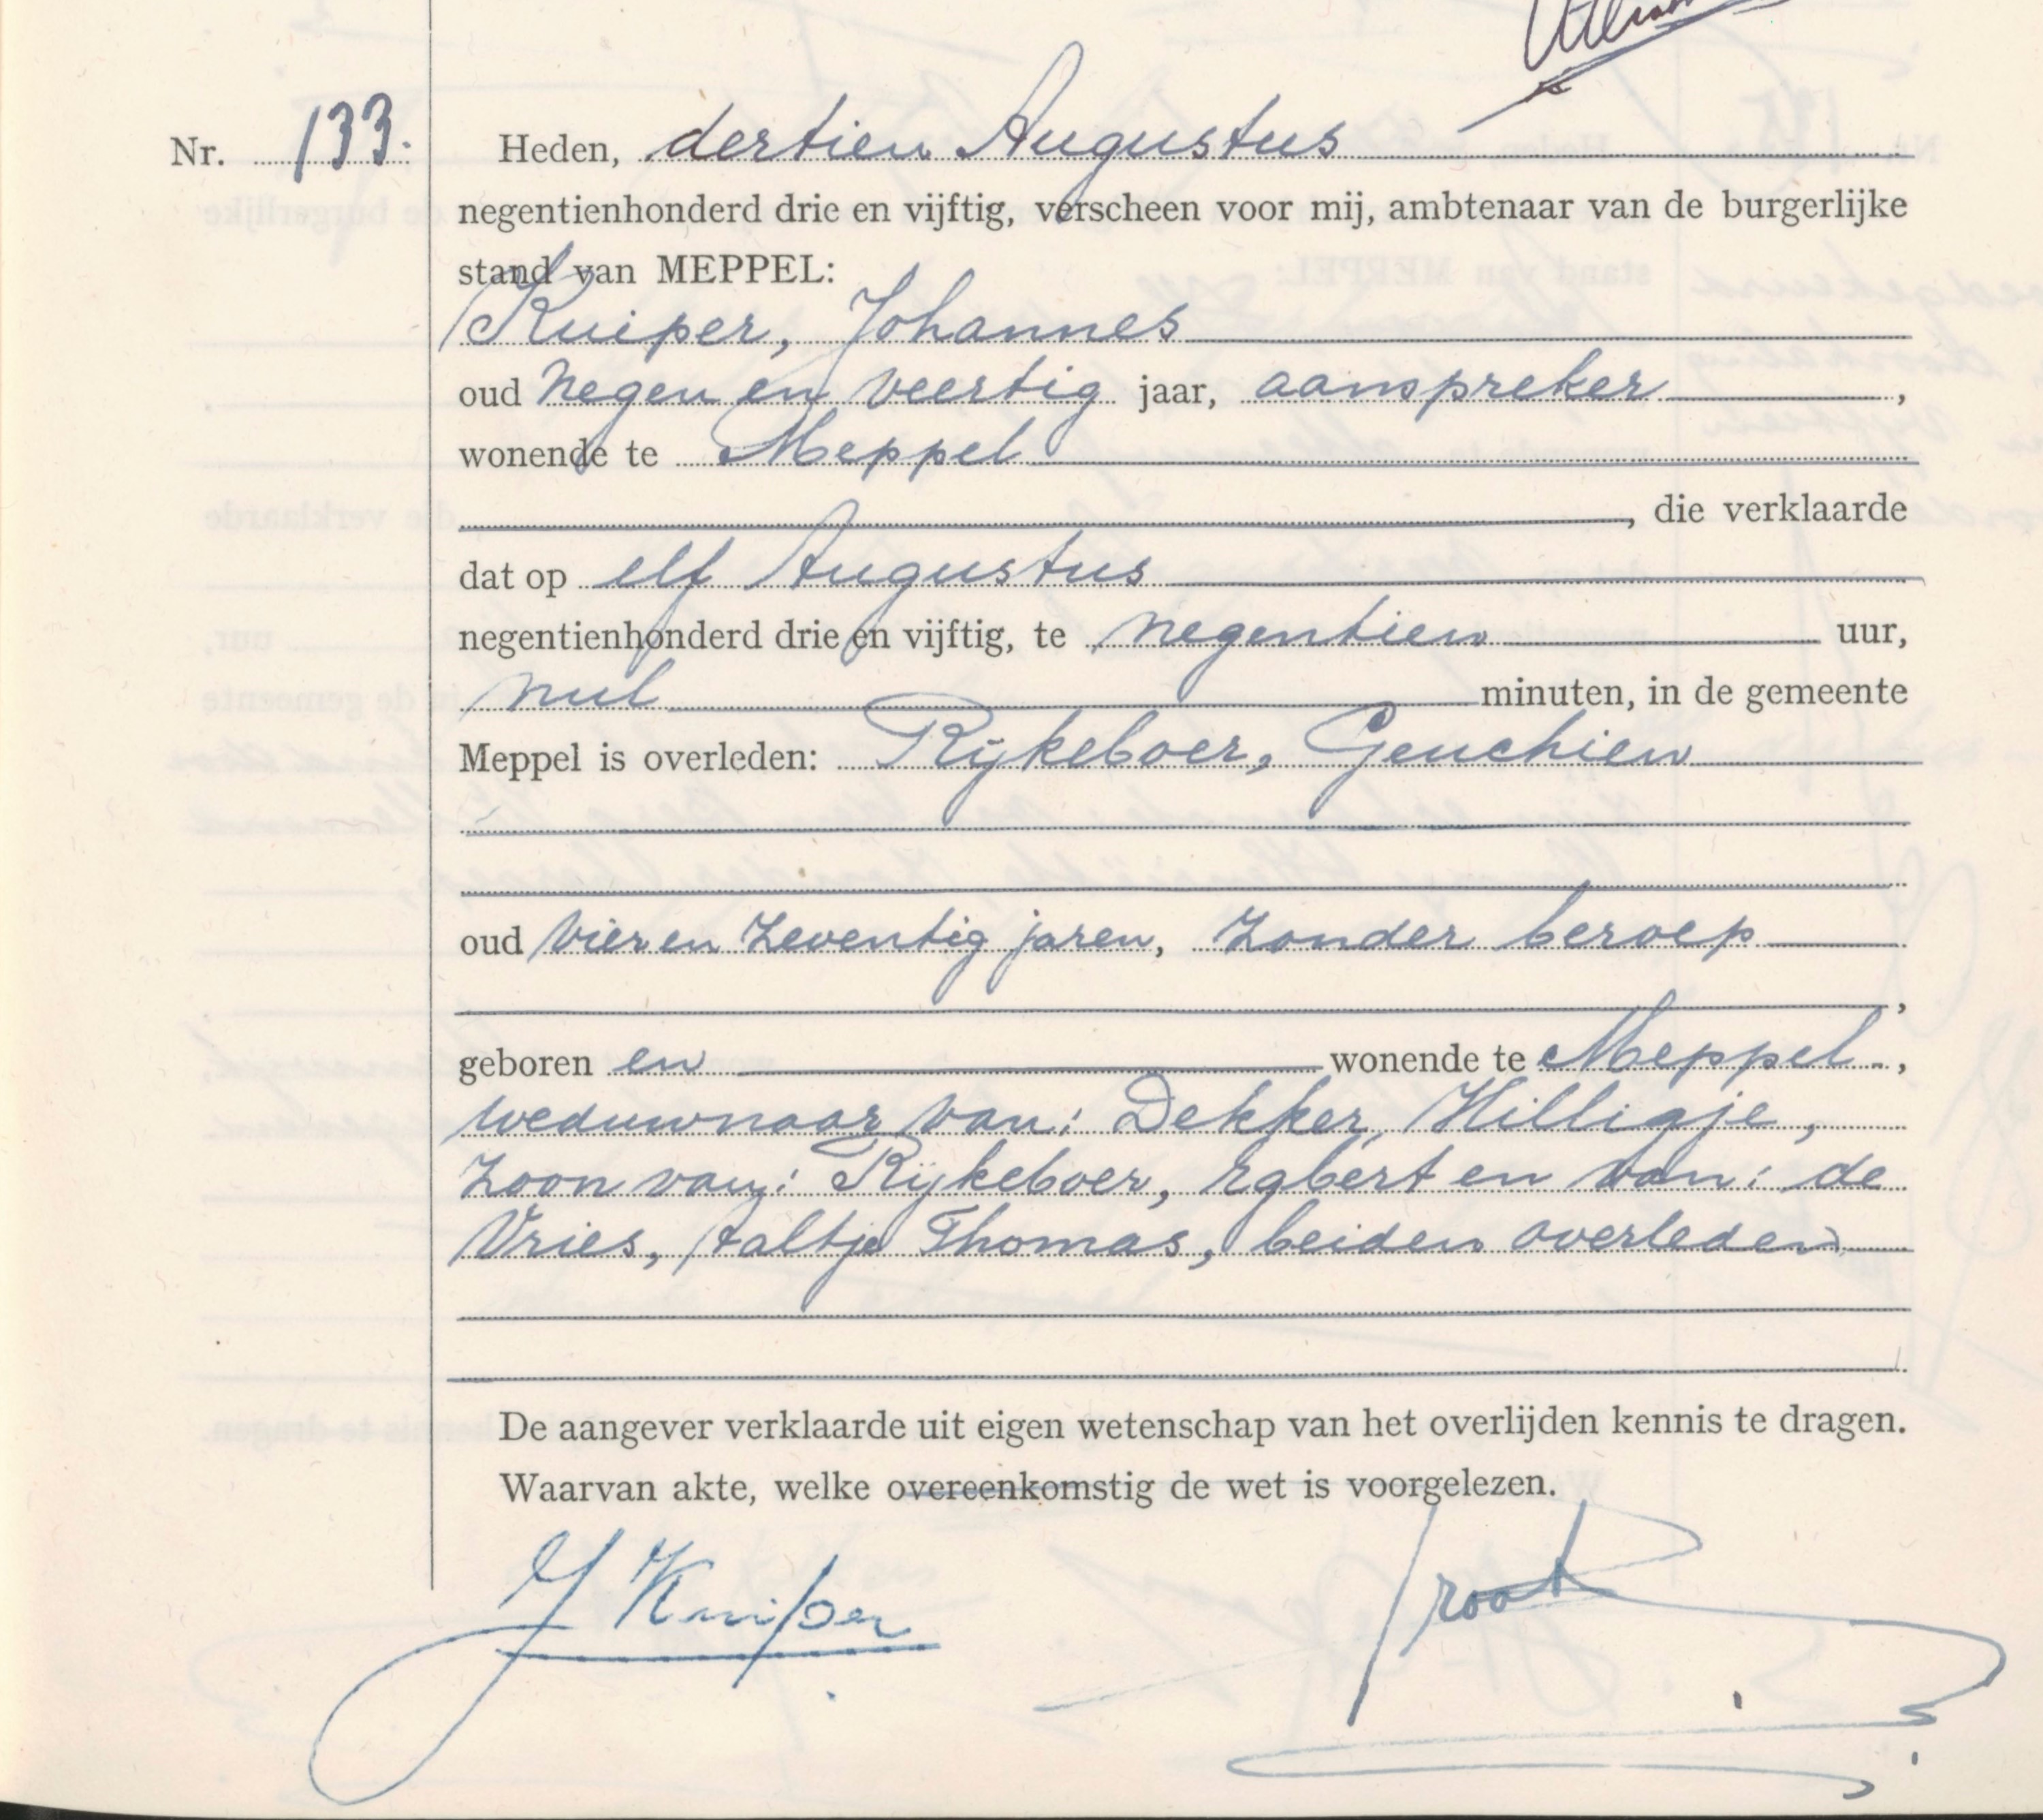 Nr. 133.
Heden, dertien Augustus
negentienhonderd drie en vijftig, verscheen voor mij, ambtenaar van de burgerlijke
stand van MEPPEL:
Kuiper, Johannes
oud negen en veertig jaar, aanspreker,
wonende te Meppel
, die verklaarde
dat op elf Augustus
negentienhonderd drie en vijftig, te negentien uur,
nul minuten, in de gemeente
Meppel is overleden: Rijkeboer, Geuchien
oud vier en zeventig jaren, zonder beroep
,
geboren en wonende te Meppel,
weduwnaar van: Dekker, Hilligje,
zoon van: Rijkeboer, Egbert en van: de
Vries, Aaltje Thomas, beiden overleden
De aangever verklaarde uit eigen wetenschap van het overlijden kennis te dragen.
Waarvan akte, welke overeenkomstig de wet is voorgelezen.
J Kuiper